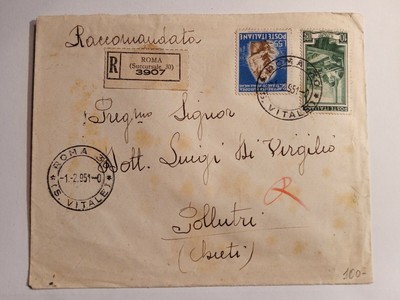 Raccomandata
R
ROMA
(Succursale 30)
3907
POSTE ITALIANE
Preg.mo Signor
Dott. Luigi Di Virgilio
Pollutri
(Chieti)
ROMA 30
-1.-2.951-0
(S. VITALE)
ROMA
951-0
(S. VITALE)
R
100-